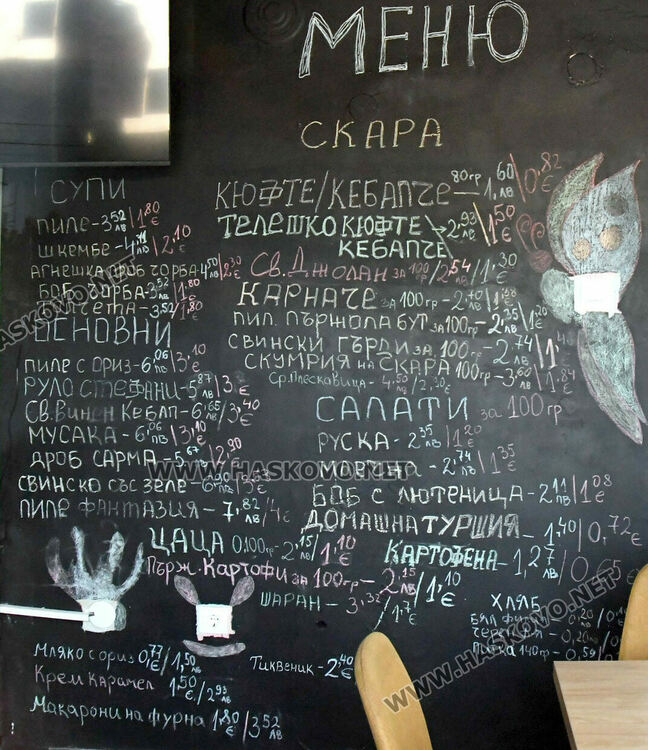 МЕНЮ
СУПИ
ПИЛЕ - 3,52 лв / 1,80 €
ШКЕМБЕ - 4, / 2,10 €
АГНЕШКА ДРОБ ЧОРБА - 4,50 лв / 2,30 €
БОБ ЧОРБА - 3,52 / 1,80 €
- 3,52 / 1,80
ОСНОВНИ
ПИЛЕ С ОРИЗ - 6,06 лв / 3,10 €
РУЛО СТЕФАНИ - 5,87 лв / 3 €
СВ. ВИНЕН КЕБАП - 6,65 лв / 3,40 €
МУСАКА - 6,06 лв / 3,10 €
ДРОБ САРМА - 5,67 лв / 2,90
СВИНСКО СЪС ЗЕЛЕ -
ПИЛЕ ФАНТАЗИЯ - 7,82 лв / 4 €
СКАРА
КЮФТЕ/КЕБАПЧЕ - 80гр 1,60 лв / 0,82 €
ТЕЛЕШКО КЮФТЕ - 2,93 лв / 1,50 €
КЕБАПЧЕ
СВ. ДЖОЛАН за 100 гр - 2,54 лв / 1,30 €
КАРНАЧЕ за 100гр - 2,
ПИЛ. ПЪРЖОЛА БУТ за 100гр - 2,35 лв / 1,20 €
СВИНСКИ ГЪРДИ за 100гр - 2,74 лв / 1,
СКУМРИЯ НА СКАРА 100гр - 3,60 лв / 1,84 €
Ср. Плескавица - 4,50 лв / 2,30 €
САЛАТИ за 100гр
РУСКА - 2,35 лв / 1,20 €
- 2,74 лв / 1,35 €
БОБ С ЛЮТЕНИЦА - 2,11 лв / 1,08 €
ДОМАШНА ТУРШИЯ - 1,40 лв / 0,72 €
КАРТОФЕНА - 1,27 лв /
ЦАЦА 0.100гр - 2,15 лв / 1,10 €
Пърж. Картофи за 100гр - 2,15 лв / 1,10 €
ШАРАН - 3,32 лв / 1,7 €
ХЛЯБ
БЯЛ - 0,20
- 0,20
140гр - 0,59
Мляко с ориз 0,77 € / 1,50 лв
Крем Карамел 1,50 € / 2,93 лв
Макарони на фурна 1,80 € / 3,52 лв
Тиквеник - 2,40 лв
WWW.HASKOVO.NET
WWW.HASKOVO.NET
WWW.HASKOVO.NET